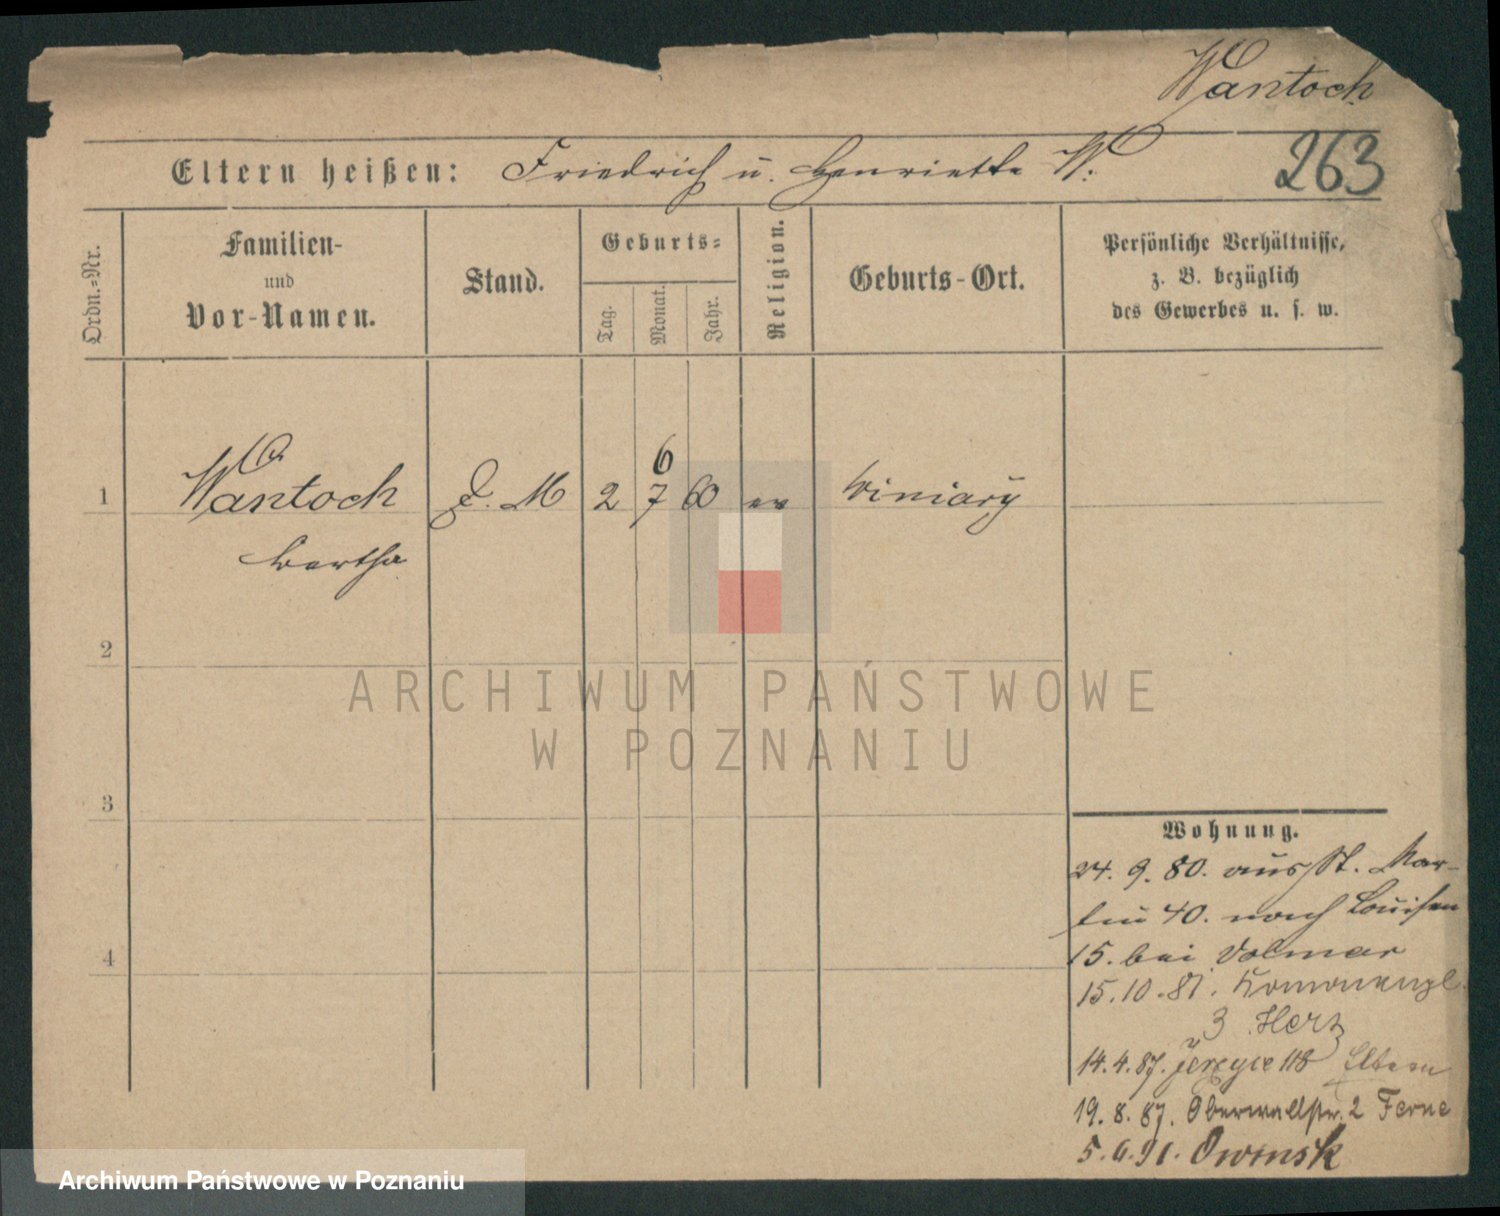 Wantoch
Eltern heißen: Friedrich u. Henriette W.
263
Ordn.-Nr.
Familien-
und
Vor-Namen.
Stand.
Geburts-
Tag.
Monat.
Jahr.
Religion.
Geburts-Ort.
Persönliche Verhältnisse,
z. B. bezüglich
des Gewerbes u. s. w.
6
1 Wantoch D. M 2 7 60 ev Winiary
Bertha
2
3
4
Wohnung.
24. 9. 80. aus St. Mar-
tin 40. nach Louisen
15. bei Volmar
15. 10. 81.
3 Herz
14. 4. 87. Jerzyce 118 Eltern
19. 8. 87. Oberwallstr. 2 Ferne
5. 6. 91. Owinsk
ARCHIWUM PAŃSTWOWE
W POZNANIU
Archiwum Państwowe w Poznaniu